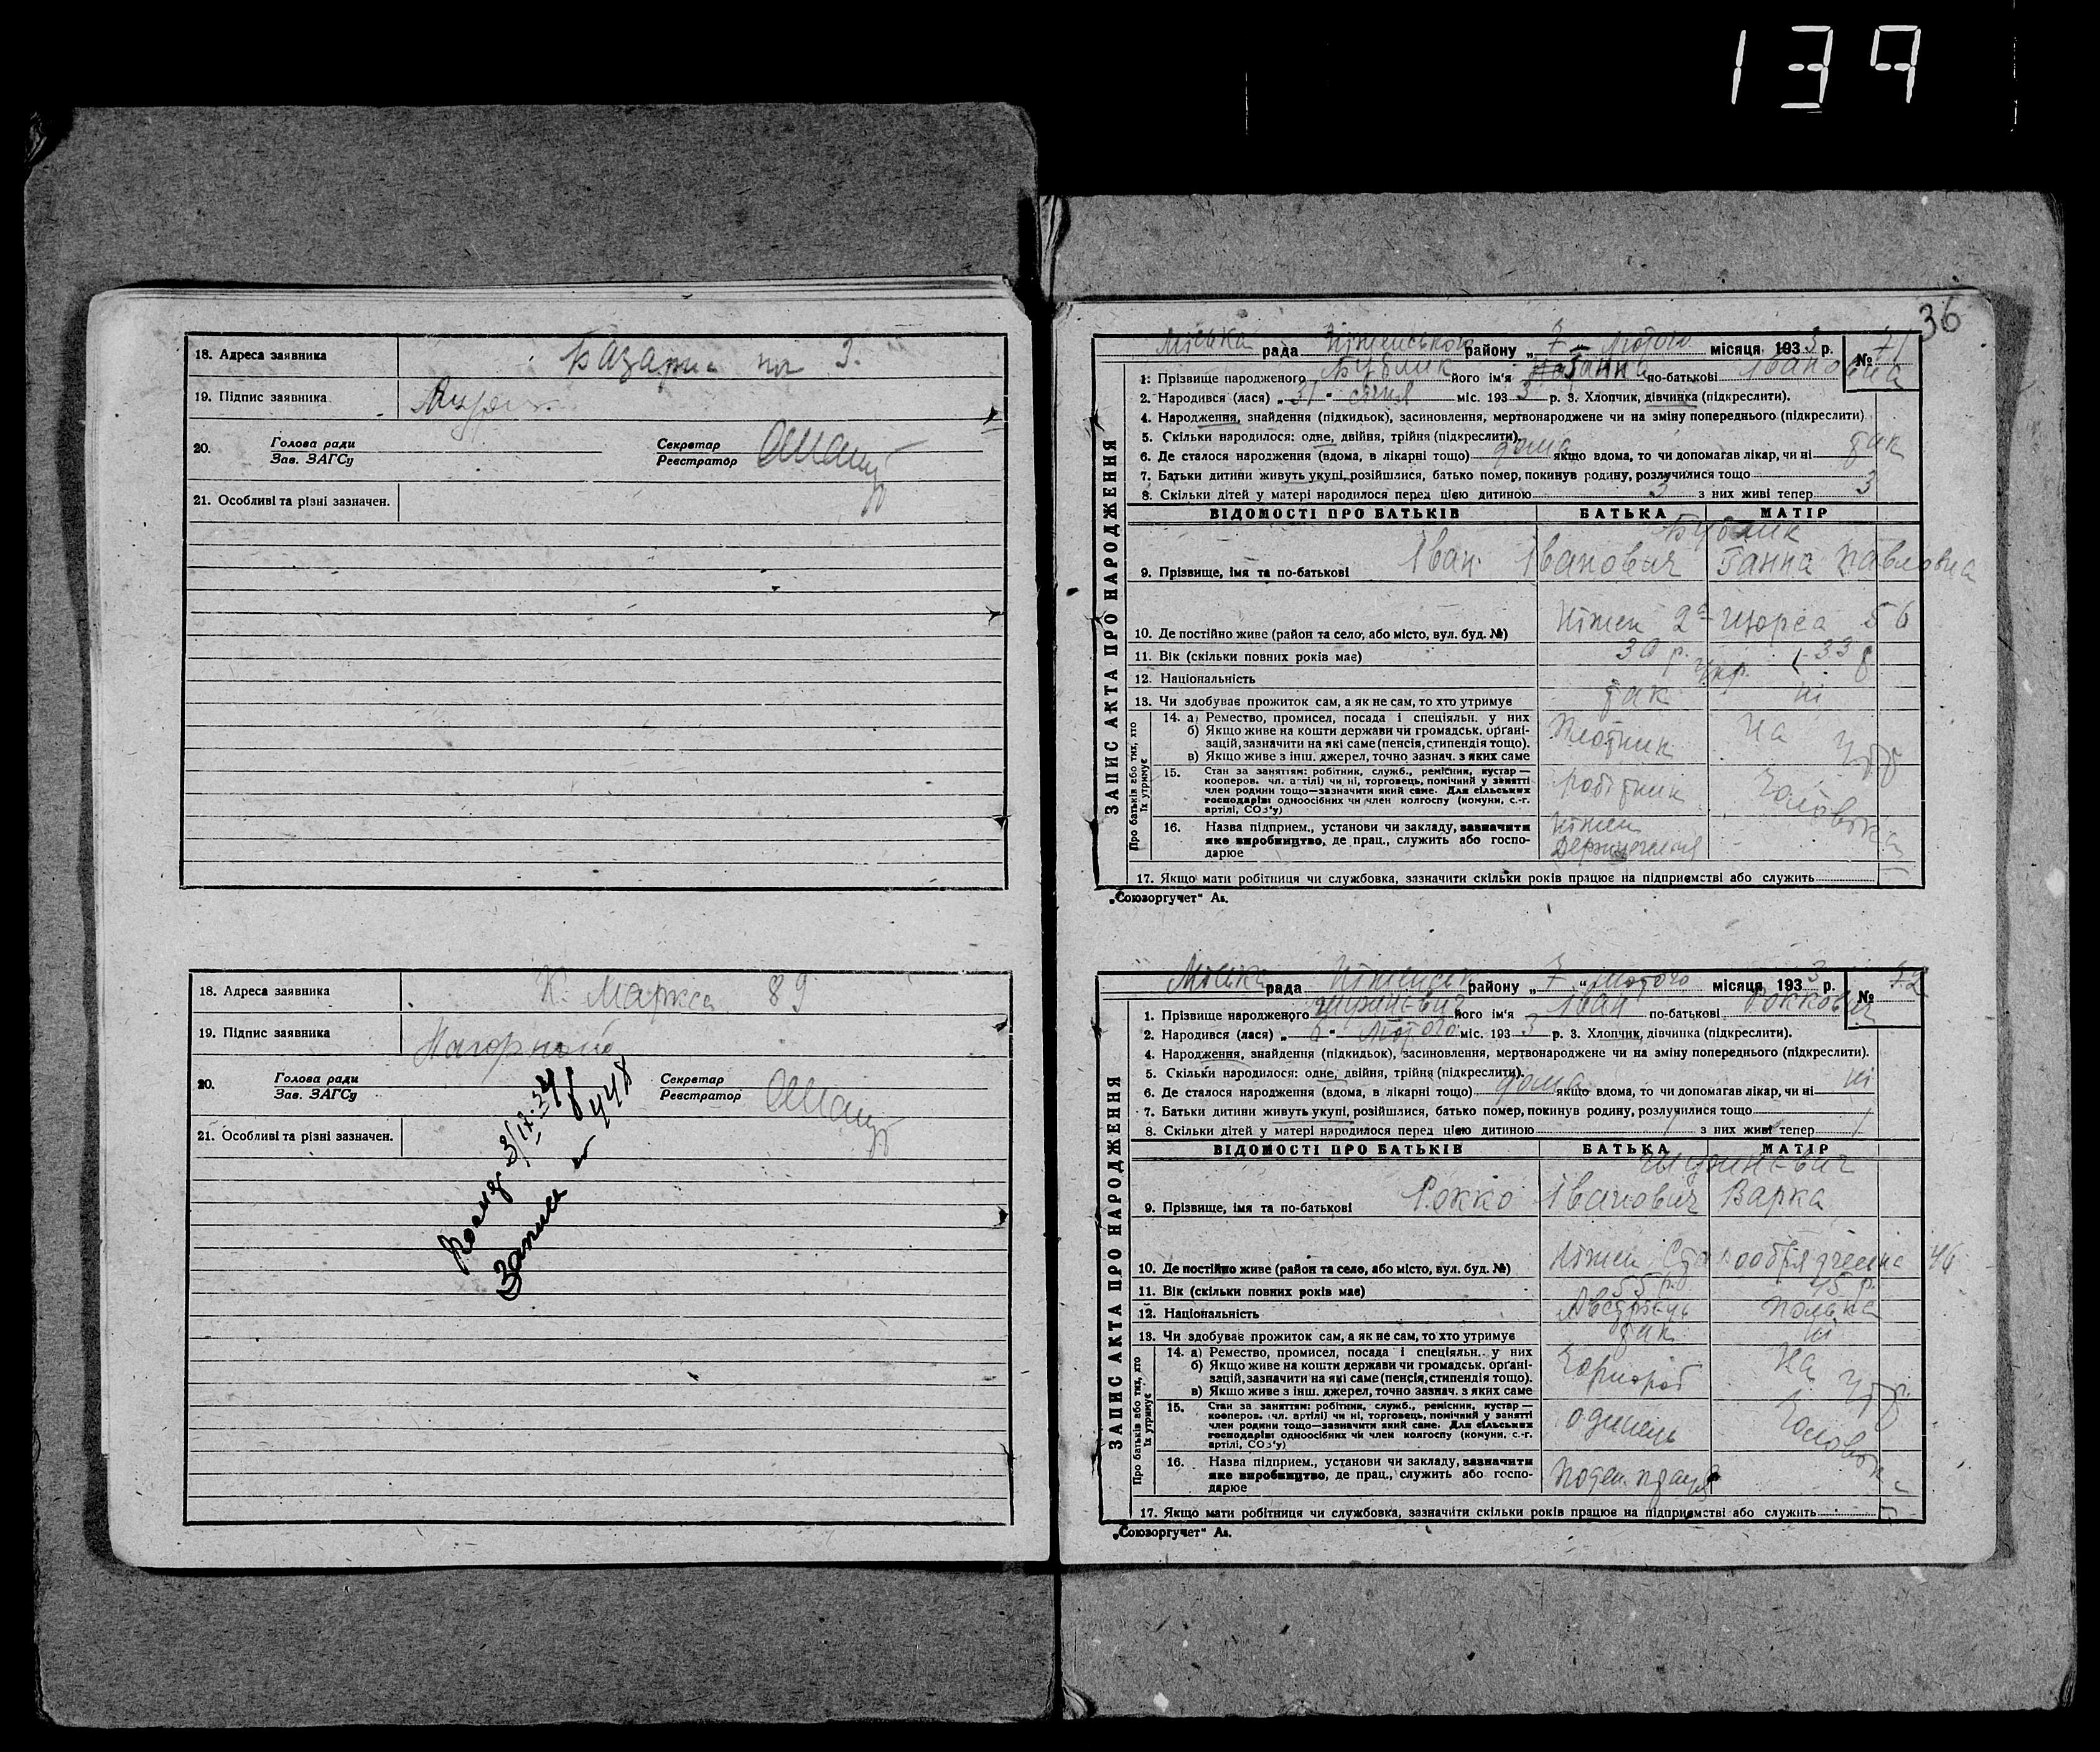 139
18. Адреса заявника Базарна № 3.
19. Підпис заявника
20. Голова ради
Зав. ЗАГСу
Секретар
Реєстратор
21. Особливі та різні зазначен.
18. Адреса заявника К. Маркса 89
19. Підпис заявника Нагорной
20. Голова ради
Зав. ЗАГСу
Секретар
Реєстратор
21. Особливі та різні зазначен.
3/IX-34
Запись № 448
36
Міська рада Ніженського району „ 7 „ Лютого місяця 1933 р. № 71
ЗАПИС АКТА ПРО НАРОДЖЕННЯ
1. Прізвище народженого Бублик його ім'я Ганна по-батькові Івановна
2. Народився (лася) „ 31 " січня міс. 1933 р. 3. Хлопчик, дівчинка (підкреслити).
4. Народження, знайдення (підкидьок), засиновлення, мертвонароджене чи на зміну попереднього (підкреслити)
5. Скільки народилося: одне, двійня, трійня (підкреслити).
6. Де сталося народження (вдома, в лікарні тощо) дома якщо вдома, то чи допомагав лікар, чи ні так
7. Батьки дитини живуть укупі, розійшлися, батько помер, покинув родину, розлучилися тощо
8. Скільки дітей у матері народилося перед цією дитиною 3 з них живі тепер 3
ВІДОМОСТІ ПРО БАТЬКІВ БАТЬКА МАТІР
Бублик
9. Прізвище, імя та по-батькові Іван Іванович Ганна Павловна
10. Де постійно живе (район та село, або місто, вул. буд. №) Ніжен 2а Щорса 56
11. Вік (скільки повних років має) 30 р. 33
12. Національність Укр.
13. Чи здобуває прожиток сам, а як не сам, то хто утримує так ні
Про батьків або тих, хто їх утримує
14. а) Ремество, промисел, посада і спеціяльн. у них
б) Якщо живе на кошти держави чи громадськ. органі-
зацій, зазначити на які саме (пенсія, стипендія тощо).
в) Якщо живе з інш. джерел, точно зазнач. з яких саме
Плотник На утр
15. Стан за заняттям: робітник, служб., ремісник, кустар —
кооперов. чл. артілі) чи ні, торговець, помічний у занятті
член родини тощо—зазначити який саме. Для сільських
господарів: одноосібних чи член колгоспу (комуни, с.-г.
артілі, СОЗ'у)
робітник
16. Назва підприєм., установи чи закладу, зазначити
яке виробництво, де прац., служить або госпо-
дарює
Ніжен
17. Якщо мати робітниця чи службовка, зазначити скільки років працює на підприємстві або служить
„Союзоргучет" Ав.
Міська рада Ніженськ району „ 7 " Лютого місяця 1933 р. № 72
ЗАПИС АКТА ПРО НАРОДЖЕННЯ
1. Прізвище народженого його ім'я Іван по-батькові Роккович
2. Народився (лася) „ 6 " Лютого міс. 1933 р. 3. Хлопчик, дівчинка (підкреслити).
4. Народження, знайдення (підкидьок), засиновлення, мертвонароджене чи на зміну попереднього (підкреслити).
5. Скільки народилося: одне, двійня, трійня (підкреслити).
6. Де сталося народження (вдома, в лікарні тощо) дома якщо вдома, то чи допомагав лікар, чи ні ні
7. Батьки дитини живуть укупі, розійшлися, батько помер, покинув родину, розлучилися тощо
8. Скільки дітей у матері народилося перед цією дитиною 1 з них живі тепер 1
ВІДОМОСТІ ПРО БАТЬКІВ БАТЬКА МАТІР
9. Прізвище, імя та по-батькові Рокко Іванович Варка
10. Де постійно живе (район та село, або місто, вул. буд. №) Ніжен Старообрядческа 46
11. Вік (скільки повних років має) 55 р. 45 р.
12. Національність Австрієць полька
13. Чи здобуває прожиток сам, а як не сам, то хто утримує так ні
Про батьків або тих, хто їх утримує
14. а) Ремество, промисел, посада і спеціяльн. у них
б) Якщо живе на кошти держави чи громадськ. органі-
зацій, зазначити на які саме (пенсія, стипендія тощо).
в) Якщо живе з інш. джерел, точно зазнач. з яких саме
Чорнороб На утр.
15. Стан за заняттям: робітник, служб., ремісник, кустар —
кооперов. чл. артілі) чи ні, торговець, помічний у занятті
член родини тощо—зазначити який саме. Для сільських
господарів: одноосібних чи член колгоспу (комуни, с.-г.
артілі, СОЗ'у)
одинець
16. Назва підприєм., установи чи закладу, зазначити
яке виробництво, де прац., служить або госпо-
дарює
поден. праця
17. Якщо мати робітниця чи службовка, зазначити скільки років працює на підприємстві або служить
„Союзоргучет" Ав.